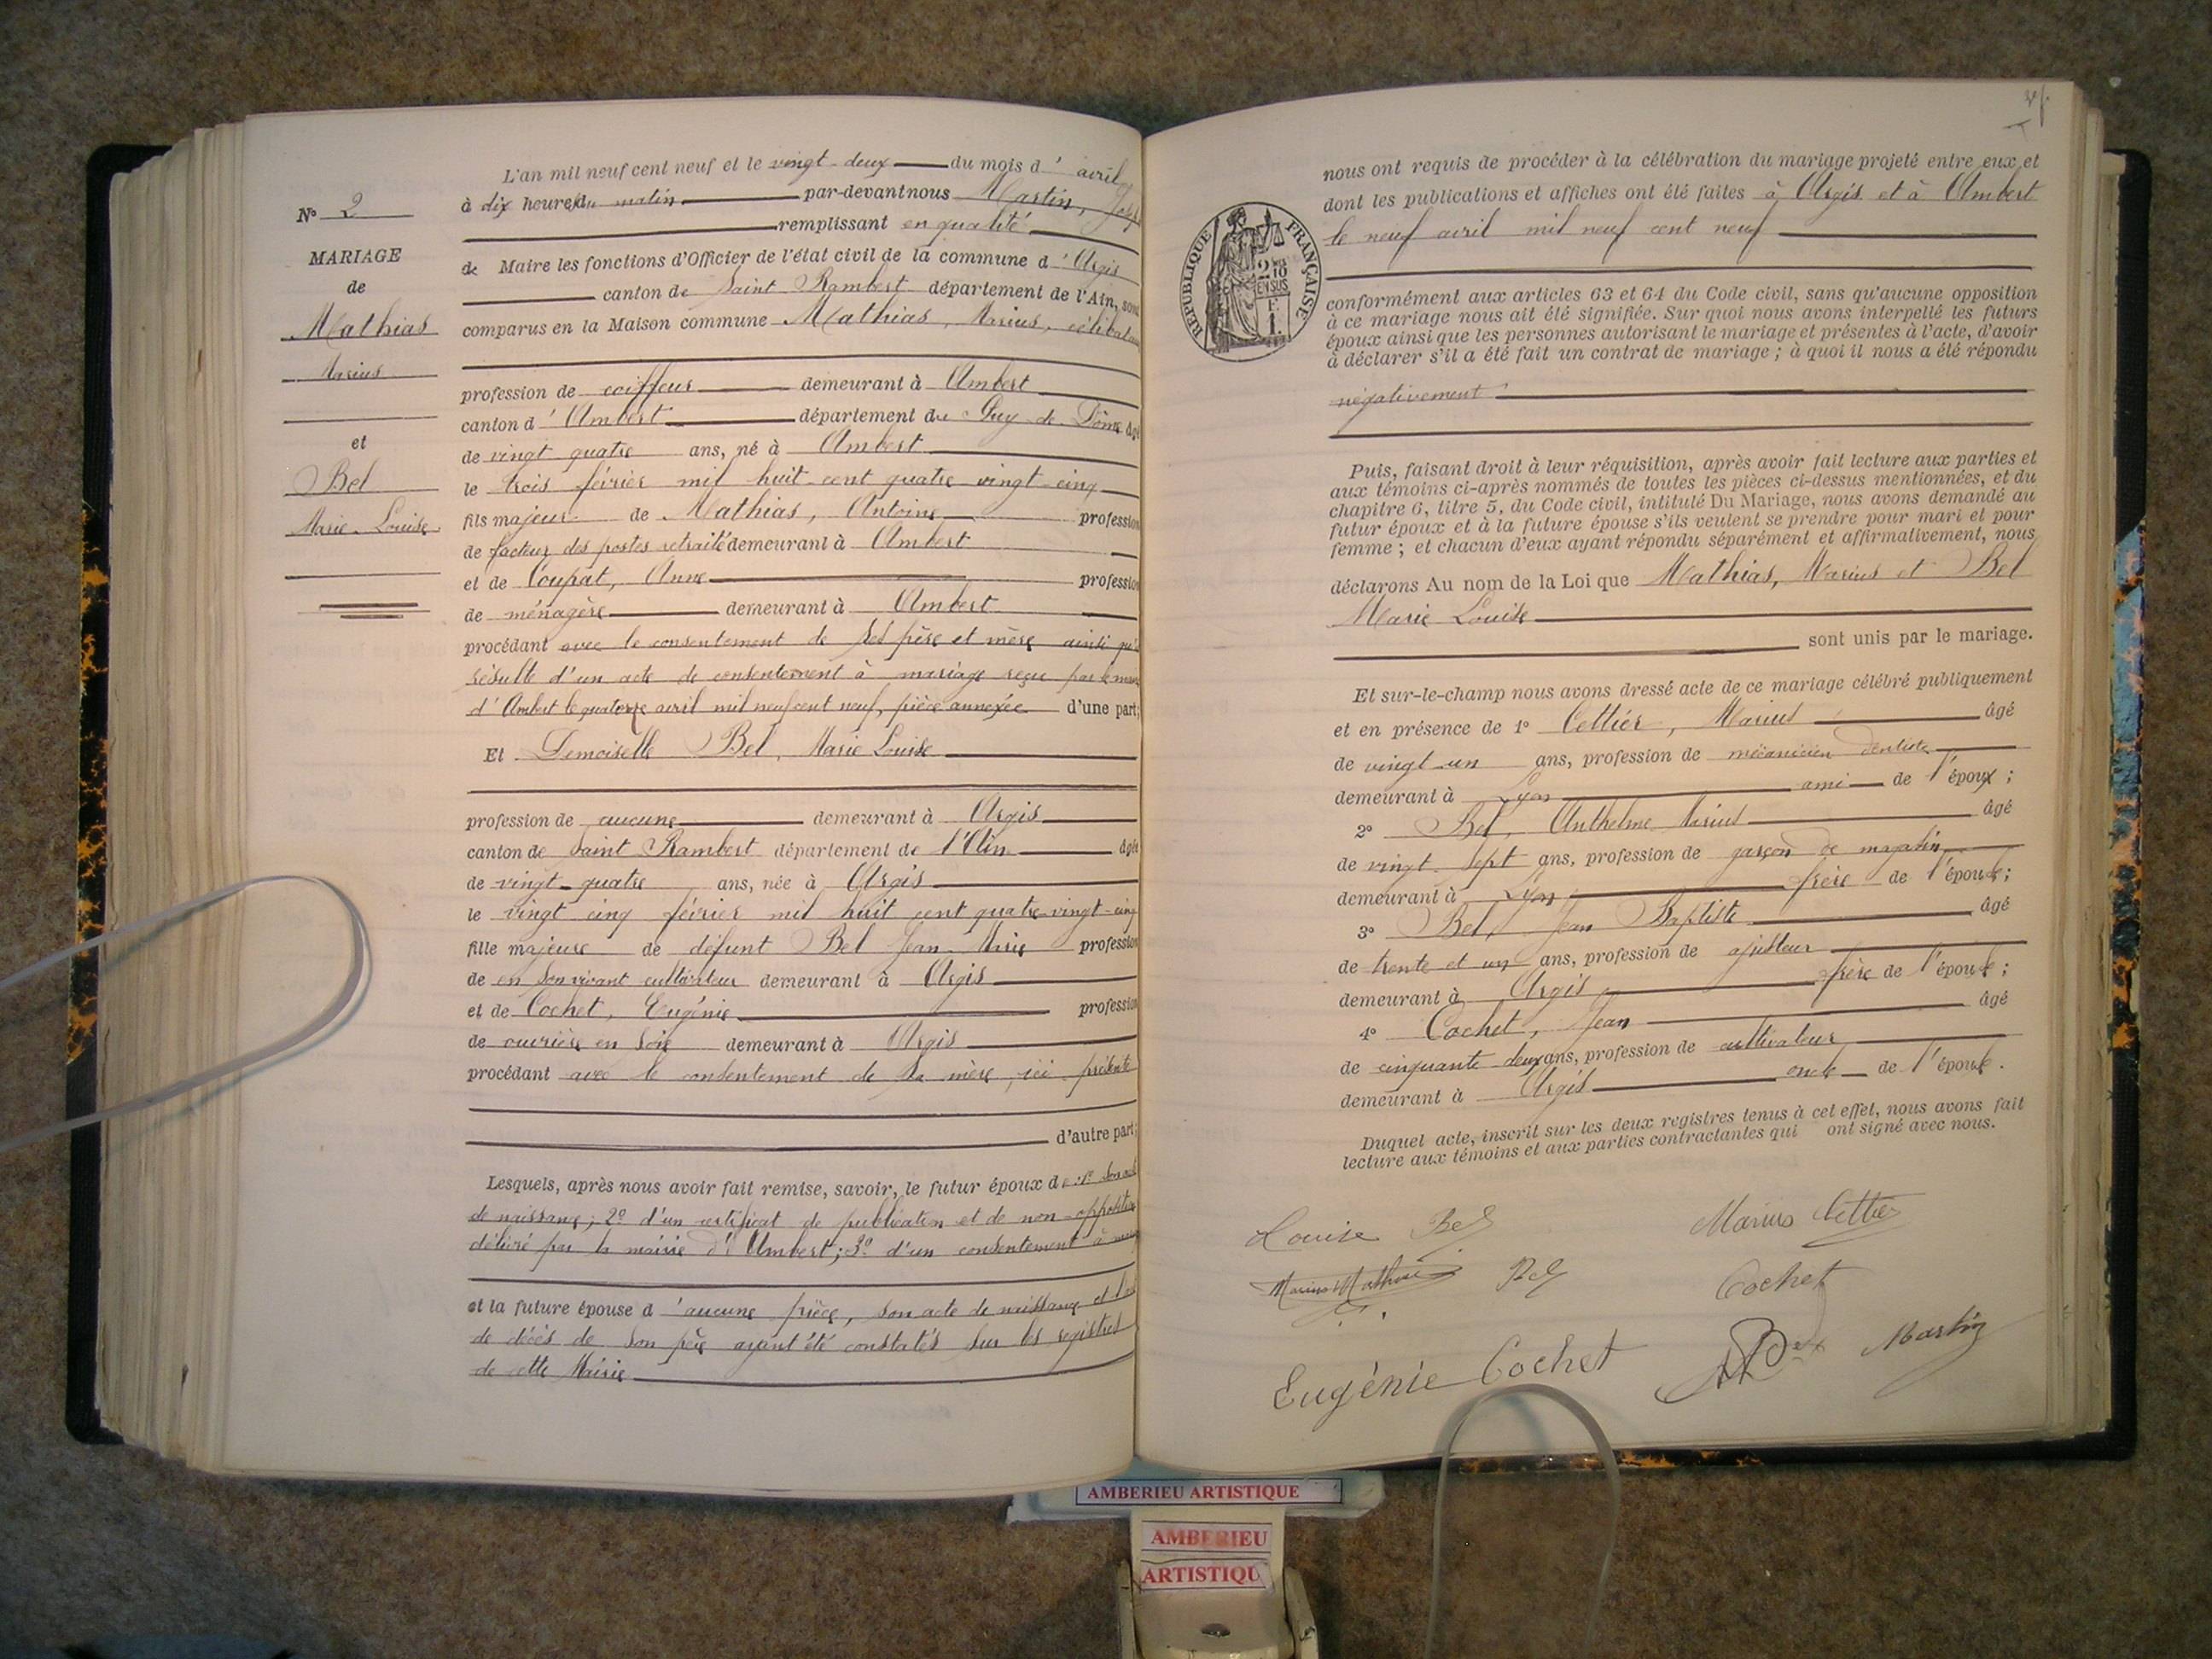 N° 2
MARIAGE
de
Mathias
Marius
et
Bel
Marie-Louise
L'an mil neuf cent neuf et le vingt-deux du mois d'avril
à dix heures du matin par-devant nous Martin,
remplissant en qualité
de Maire les fonctions d'Officier de l'état civil de la commune d'Argis
canton de Saint Rambert département de l'Ain, sont
comparus en la Maison commune Mathias, Marius, célibataire
profession de coiffeur demeurant à Ambert
canton d'Ambert département du Puy-de-Dôme âgé
de vingt quatre ans, né à Ambert
le trois février mil huit-cent quatre-vingt-cinq
fils majeur de Mathias, Antoine profession
de facteur des postes retraité demeurant à Ambert
et de Coupat, Anne profession
de ménagère demeurant à Ambert
procédant avec le consentement de ses père et mère ainsi qu'il
résulte d'un acte de consentement à mariage reçu par le maire
d'Ambert le quatorze avril mil neuf cent neuf, pièce annexée d'une part;
Et Demoiselle Bel, Marie Louise
profession de aucune demeurant à Argis
canton de Saint Rambert département de l'Ain âgée
de vingt-quatre ans, née à Argis
le vingt cinq février mil huit cent quatre-vingt-cinq
fille majeure de défunt Bel Jean-Marie profession
de en son vivant cultivateur demeurant à Argis
et de Cochet, Eugénie profession
de ouvrière en soie demeurant à Argis
procédant avec le consentement de sa mère, ici présente
d'autre part;
Lesquels, après nous avoir fait remise, savoir, le futur époux de: 1° son acte
de naissance; 2° d'un certificat de publication et de non-opposition
délivré par la mairie d'Ambert; 3° d'un consentement à
et la future épouse d'aucune pièce, son acte de naissance et
de décès de son père ayant été constatés sur les registres
de cette Mairie
nous ont requis de procéder à la célébration du mariage projeté entre eux et
dont les publications et affiches ont été faites à Argis et à Ambert
le neuf avril mil neuf cent neuf
RÉPUBLIQUE FRANÇAISE
conformément aux articles 63 et 64 du Code civil, sans qu'aucune opposition
à ce mariage nous ait été signifiée. Sur quoi nous avons interpellé les futurs
époux ainsi que les personnes autorisant le mariage et présentes à l'acte, d'avoir
à déclarer s'il a été fait un contrat de mariage; à quoi il nous a été répondu
négativement
Puis, faisant droit à leur réquisition, après avoir fait lecture aux parties et
aux témoins ci-après nommés de toutes les pièces ci-dessus mentionnées, et du
chapitre 6, titre 5, du Code civil, intitulé Du Mariage, nous avons demandé au
futur époux et à la future épouse s'ils veulent se prendre pour mari et pour
femme; et chacun d'eux ayant répondu séparément et affirmativement, nous
déclarons Au nom de la Loi que Mathias, Marius et Bel
Marie Louise
sont unis par le mariage.
Et sur-le-champ nous avons dressé acte de ce mariage célébré publiquement
et en présence de 1° Cettier, Marius âgé
de vingt-un ans, profession de mécanicien dentiste
demeurant à Lyon ami de l'époux;
2° Bel, Anthelme Marius âgé
de vingt-sept ans, profession de garçon de magasin
demeurant à Lyon frère de l'épouse;
3° Bel, Jean Baptiste âgé
de trente et un ans, profession de ajusteur
demeurant à Argis frère de l'épouse;
4° Cochet, Jean âgé
de cinquante deux ans, profession de cultivateur
demeurant à Argis oncle de l'épouse.
Duquel acte, inscrit sur les deux registres tenus à cet effet, nous avons fait
lecture aux témoins et aux parties contractantes qui ont signé avec nous.
Louise Bel
Marius Cettier
Marius Mathias
Bel
Cochet
Eugénie Cochet
Martin
AMBERIEU ARTISTIQUE
AMBERIEU
ARTISTIQU